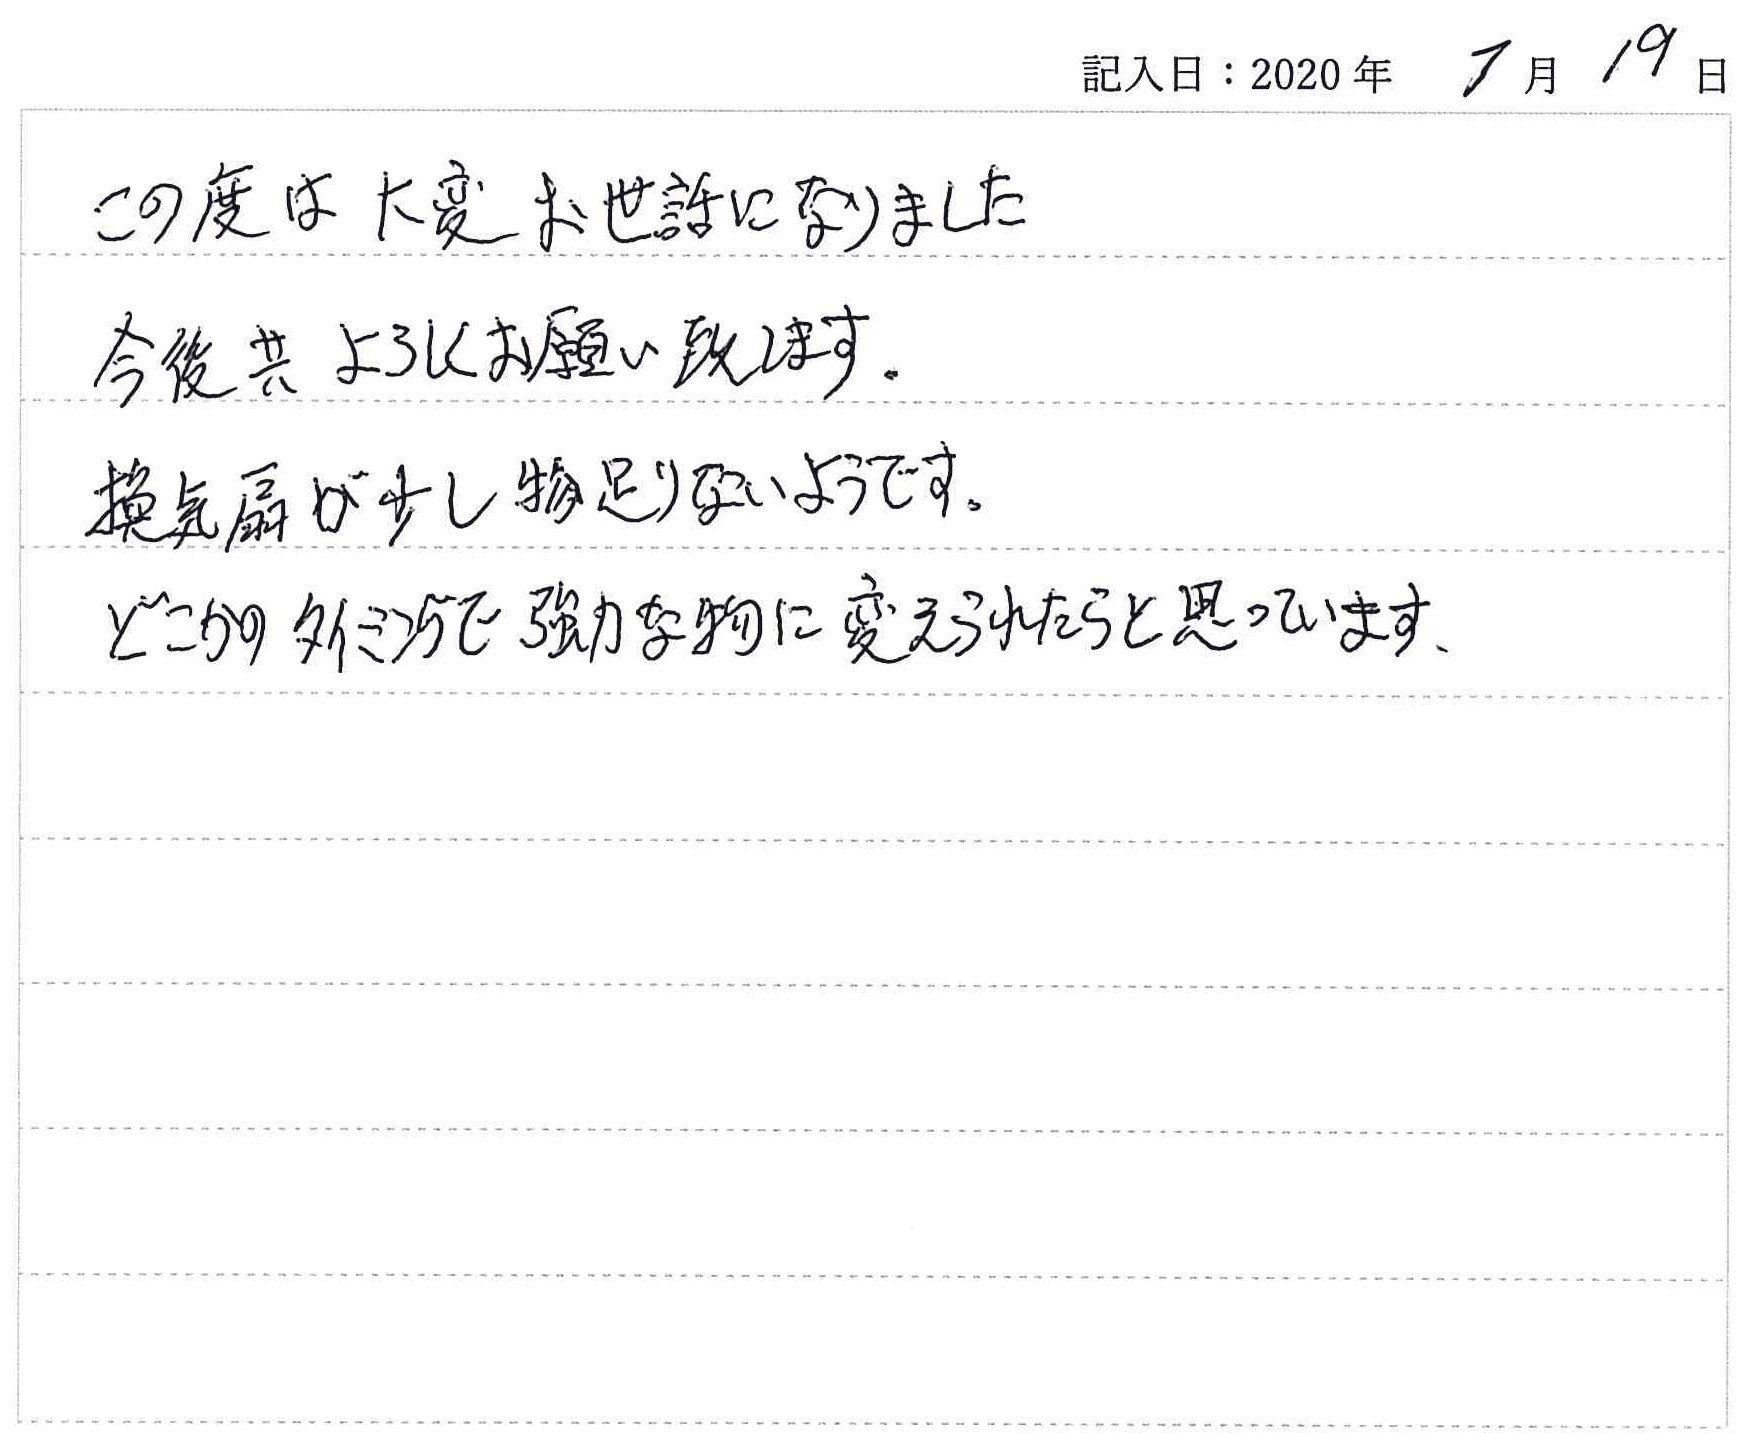 記入日：2020年 7月 19日
この度は大変お世話になりました
今後共よろしくお願い致します.
換気扇が少し物足りないようです。
どこかのタイミングで強力な物に変えられたらと思っています、